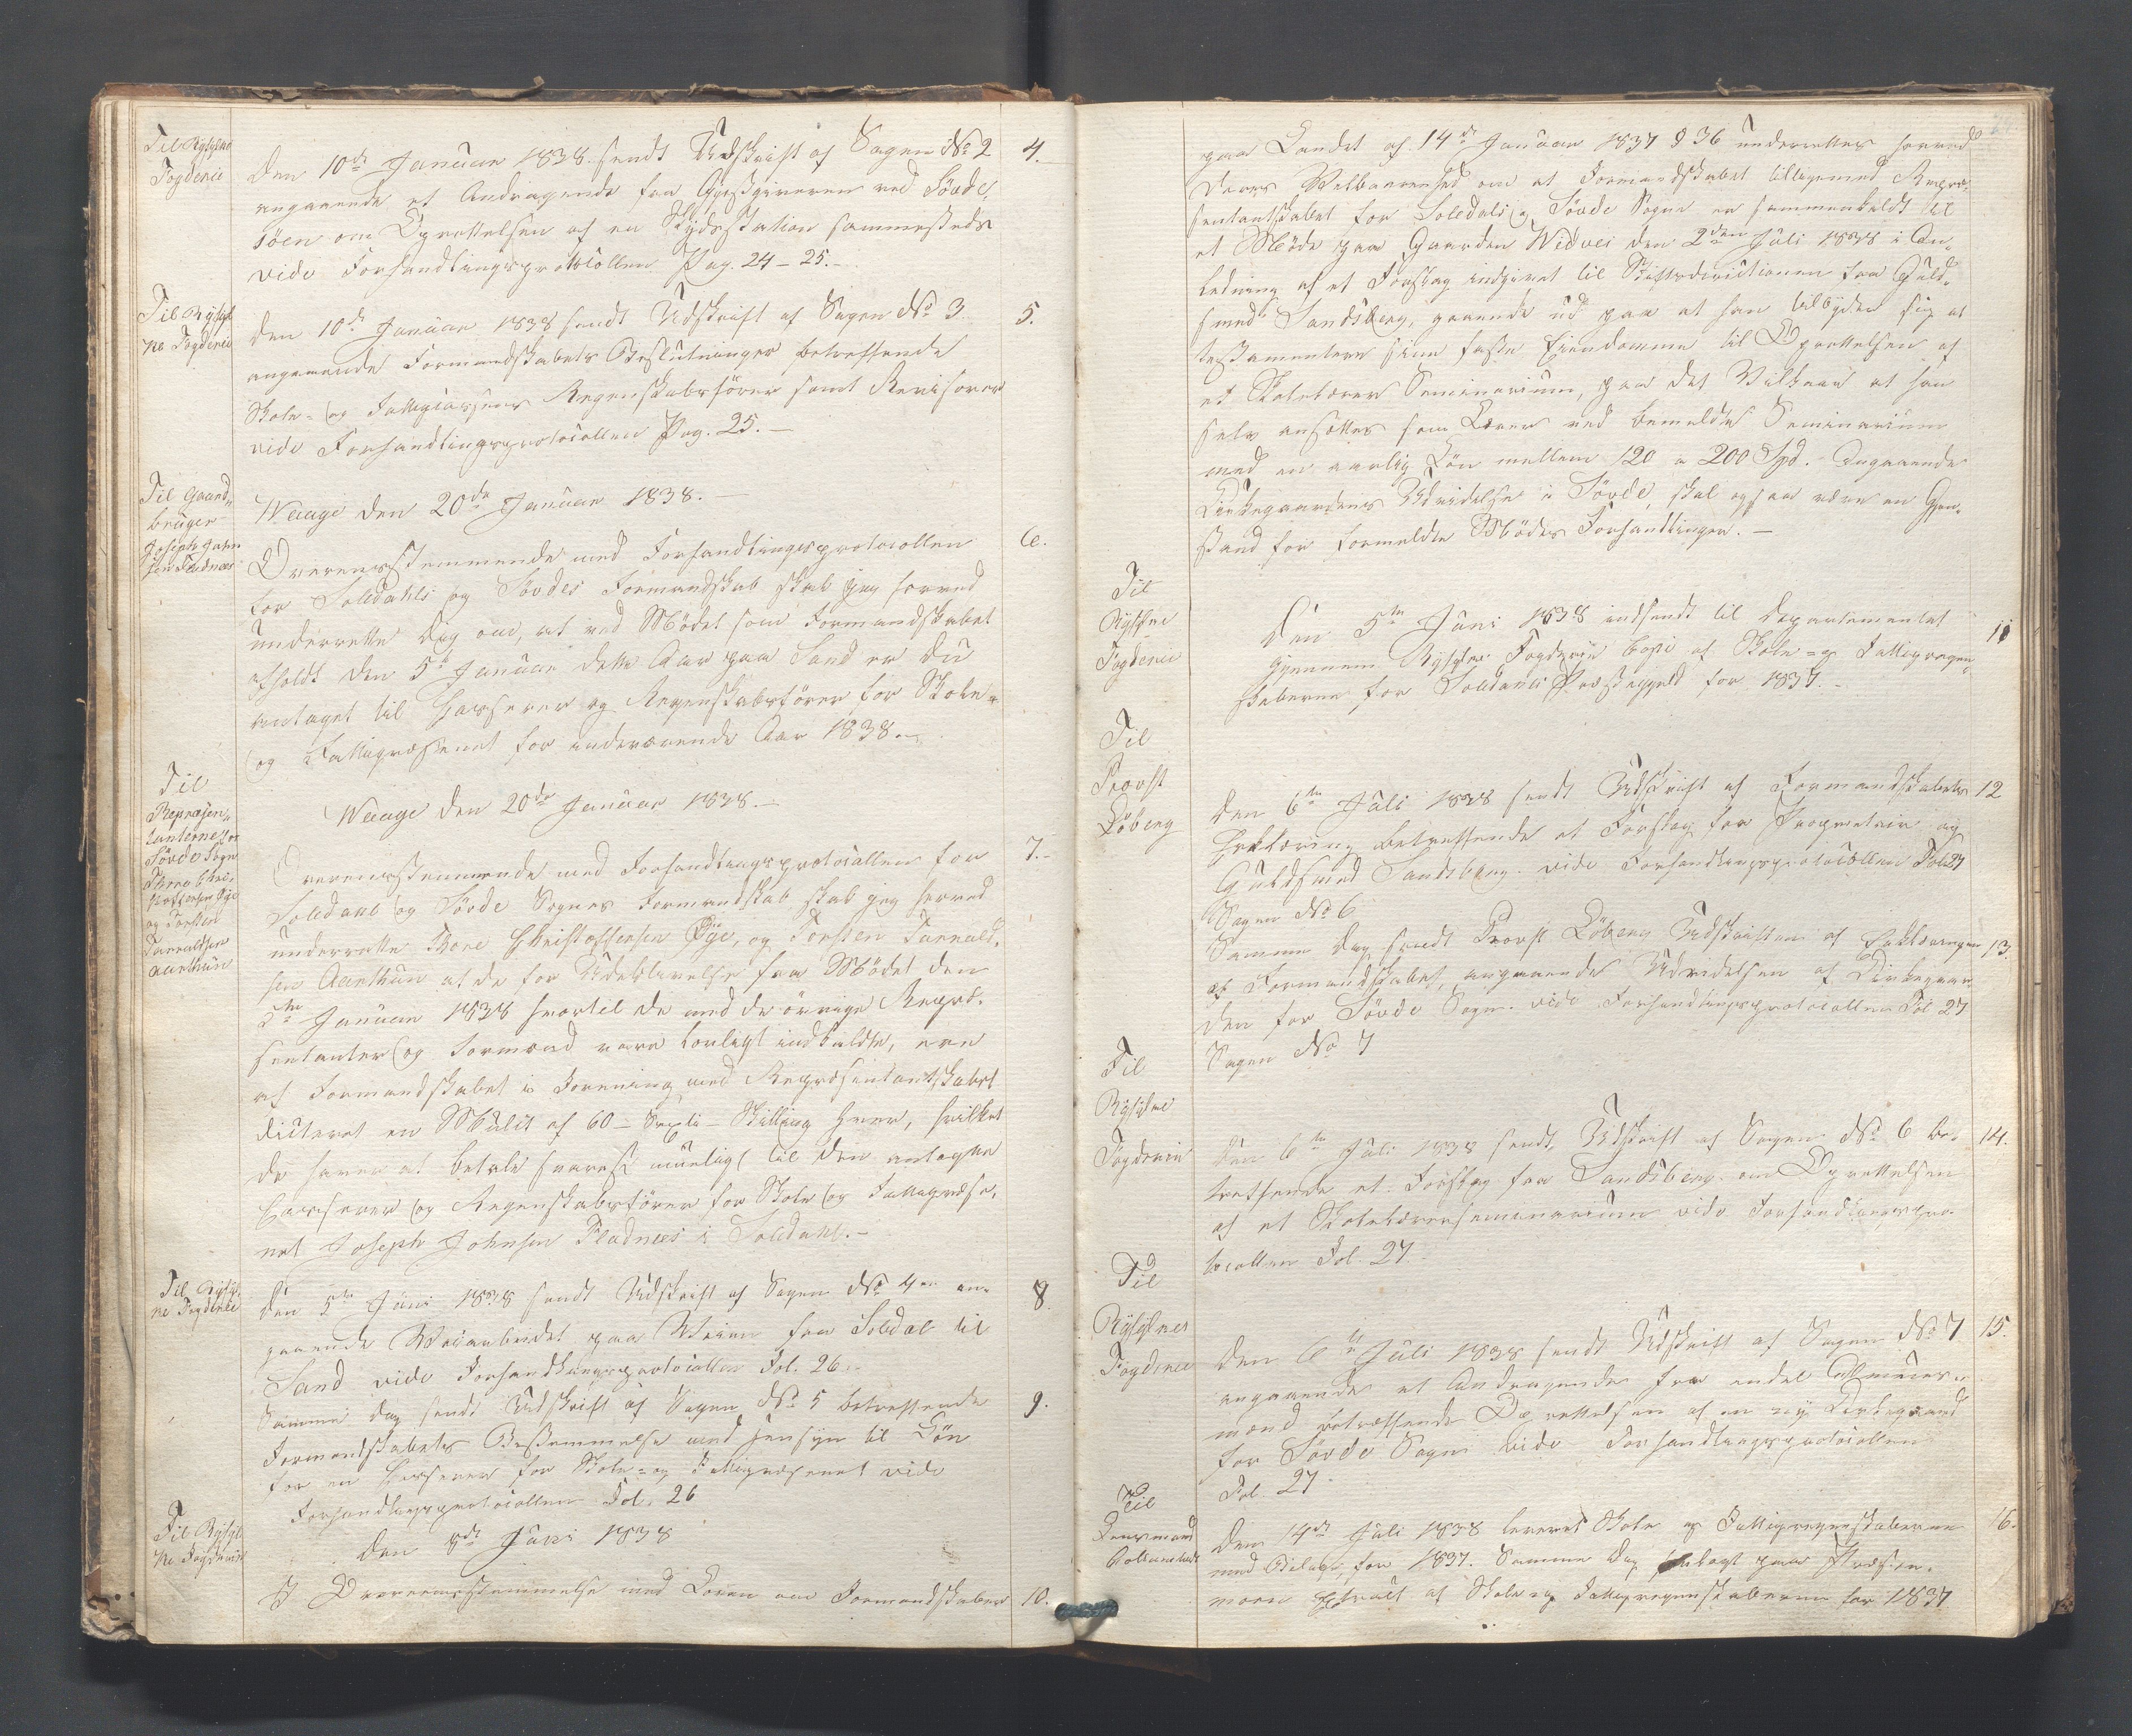 Til Ryfylke
Fogderie
Den 10de Januar 1838 sendt Udskrift af Sagen No 2
4.
angaaende et Andragende fra Gjæstgiveren ved Søvde-
søen om Oprettelsen af en Skydsstation sammesteds
vide Forhandlingsprotocollen Pag. 24-25.-
Til Ryfyl-
ke Fogderie
Den 10de Januar 1838 sendt Udskrift af Sagen No 3
5.
angaaende Formandskabets Beslutninger betreffende
Skole- og Fattigcassens Regnskabsfører samt Revisorer
vide Forhandlingsprotocollen Pag. 25.-
Til Gaard-
bruger
Joseph John-
sen Fladnæs
Waage den 20de Januar 1838.-
Overensstemmende med Forhandlingsprotocollen
6.
for Soledahls og Søvdes Formandskab skal jeg herved
underrette Dig om, at ved Mødet som Formandskabet
afholdt den 5te Januar dette Aar paa Sand er du
antaget til Casserer og Regnskabsfører for Skole-
og Fattigvæsenet for indeværende Aar 1838.-
Til
Repræsen-
tanterne for
Søvde Sogn
Thore Chri-
stoffersen Øie
og Torsten
Tarraldsen
Aarthun
Waage den 20de Januar 1838.-
Overensstemmende med Forhandlingsprotocollen for
7.-
Soledahl og Søvde Sognes Formandskab skal jeg herved
underrette Thore Christoffersen Øje, og Torsten Tarrald-
sen Aarthun at de for Udeblivelse fra Mødet den
5te Januar 1838 hvortil de med de øvrige Repræ-
sentanter og Formænd vare lovligt indkaldte, ere
af Formandskabet i Forening med Repræsentantskabet
dicteret en Mulct af 60 - Sexti - Skilling hver, hvilket
de haver at betale snarest mueligt til den antagne
Casserer og Regnskabsfører for Skole og Fattigvæse-
net Joseph Johnsen Fladnæs i Soledahl.-
Til Ryfyl-
ke Fogderie
Den 5te Juni 1838 sendt Udskrift af Sagen No 4 an-
8
gaaende Veiarbeidet paa Veien fra Soledal til
Sand vide Forhandlingsprotocollen Fol. 26.
Samme Dag sendt Udskrift af Sagen No 5 betreffende
9.
Formandskabets Bestemmelse med Hensyn til Løn
for en Casserer for Skole- og Fattigvæsenet vide
Forhandlingsprotocollen Fol. 26
Til Ryfyl-
ke Fogderie
Den 8de Juni 1838
I Overeensstemmelse med Loven om Formandskaber
10.
paa Landet af 14de Januar 1837 § 36 underrettes herved
Deres Velbaarenhed om at Formandskabet tilligemed Repræ-
sentantskabet for Soledals og Søvde Sogne er sammenkaldt til
et Møde paa Gaarden Widvei den 2den Juli 1838 i An-
ledning af et Forslag indgivet til Stiftsdirectionen fra Guld-
smed Sandsberg, gaaende ud paa at han tilbyder sig at
testamentere sine faste Eiendomme til Oprettelsen af
et Skolelærer Seminarium, paa det Vilkaar at han
selv ansættes som Lærer ved bemeldte Seminarium
med en aarlig Løn mellem 120 a 200 Spd. - Angaaende
Kirkegaardens Udvidelse i Søvde, skal ogsaa være en Gjen-
stand for formeldte Mødes Forhandlinger.-
Til
Ryfylke
Fogderie
Den 5te Juni 1838 indsendt til Departementet
11
gjennem Ryfylke Fogderie Copi af Skole- og Fattigregn-
skaberne for Soledahls Præstegjeld for 1837.-
Til
Provst
Løberg
Den 6te Juli 1838 sendt Udskrift af Formandskabets
12
Erklæring betreffende et Forslag fra Proprietair og
Guldsmed Sandsberg. vide Forhandlingsprotocollen Fol 27
Sagen No 6
Samme Dag sendt Provst Løberg Udskriften af Erklæringen
13.
af Formandskabet, angaaende Udvidelsen af Kirkegaar-
den for Søvde Sogn. vide Forhandlingsprotocollen Fol 27
Sagen No 7
Til
Ryfylke
Fogderie
Den 6te Juli 1838 sendt, Udskrift af Sagen No 6 be-
14.
treffende et Forslag fra Sandsberg om Oprettelsen
af et Skolelærerseminarium vide Forhandlingspro-
tocollen Fol. 27.
Til
Ryfylkes
Fogderie
Den 6te Juli 1838 sendt Udskrift af Sagen No 7
15.
angaaende et Andragende fra endel Almues-
mænd betræffende Oprettelsen af en ny Kirkegaard
for Søvde Sogn vide Forhandlingsprotocollen
Fol. 27
Til
Lensmand
Den 14de Juli 1838 leveret Skole og Fattigregnskaberne
16.
med Bilage, for 1837. Samme Dag
Extract af Skole og Fattigregnskaberne for 1837